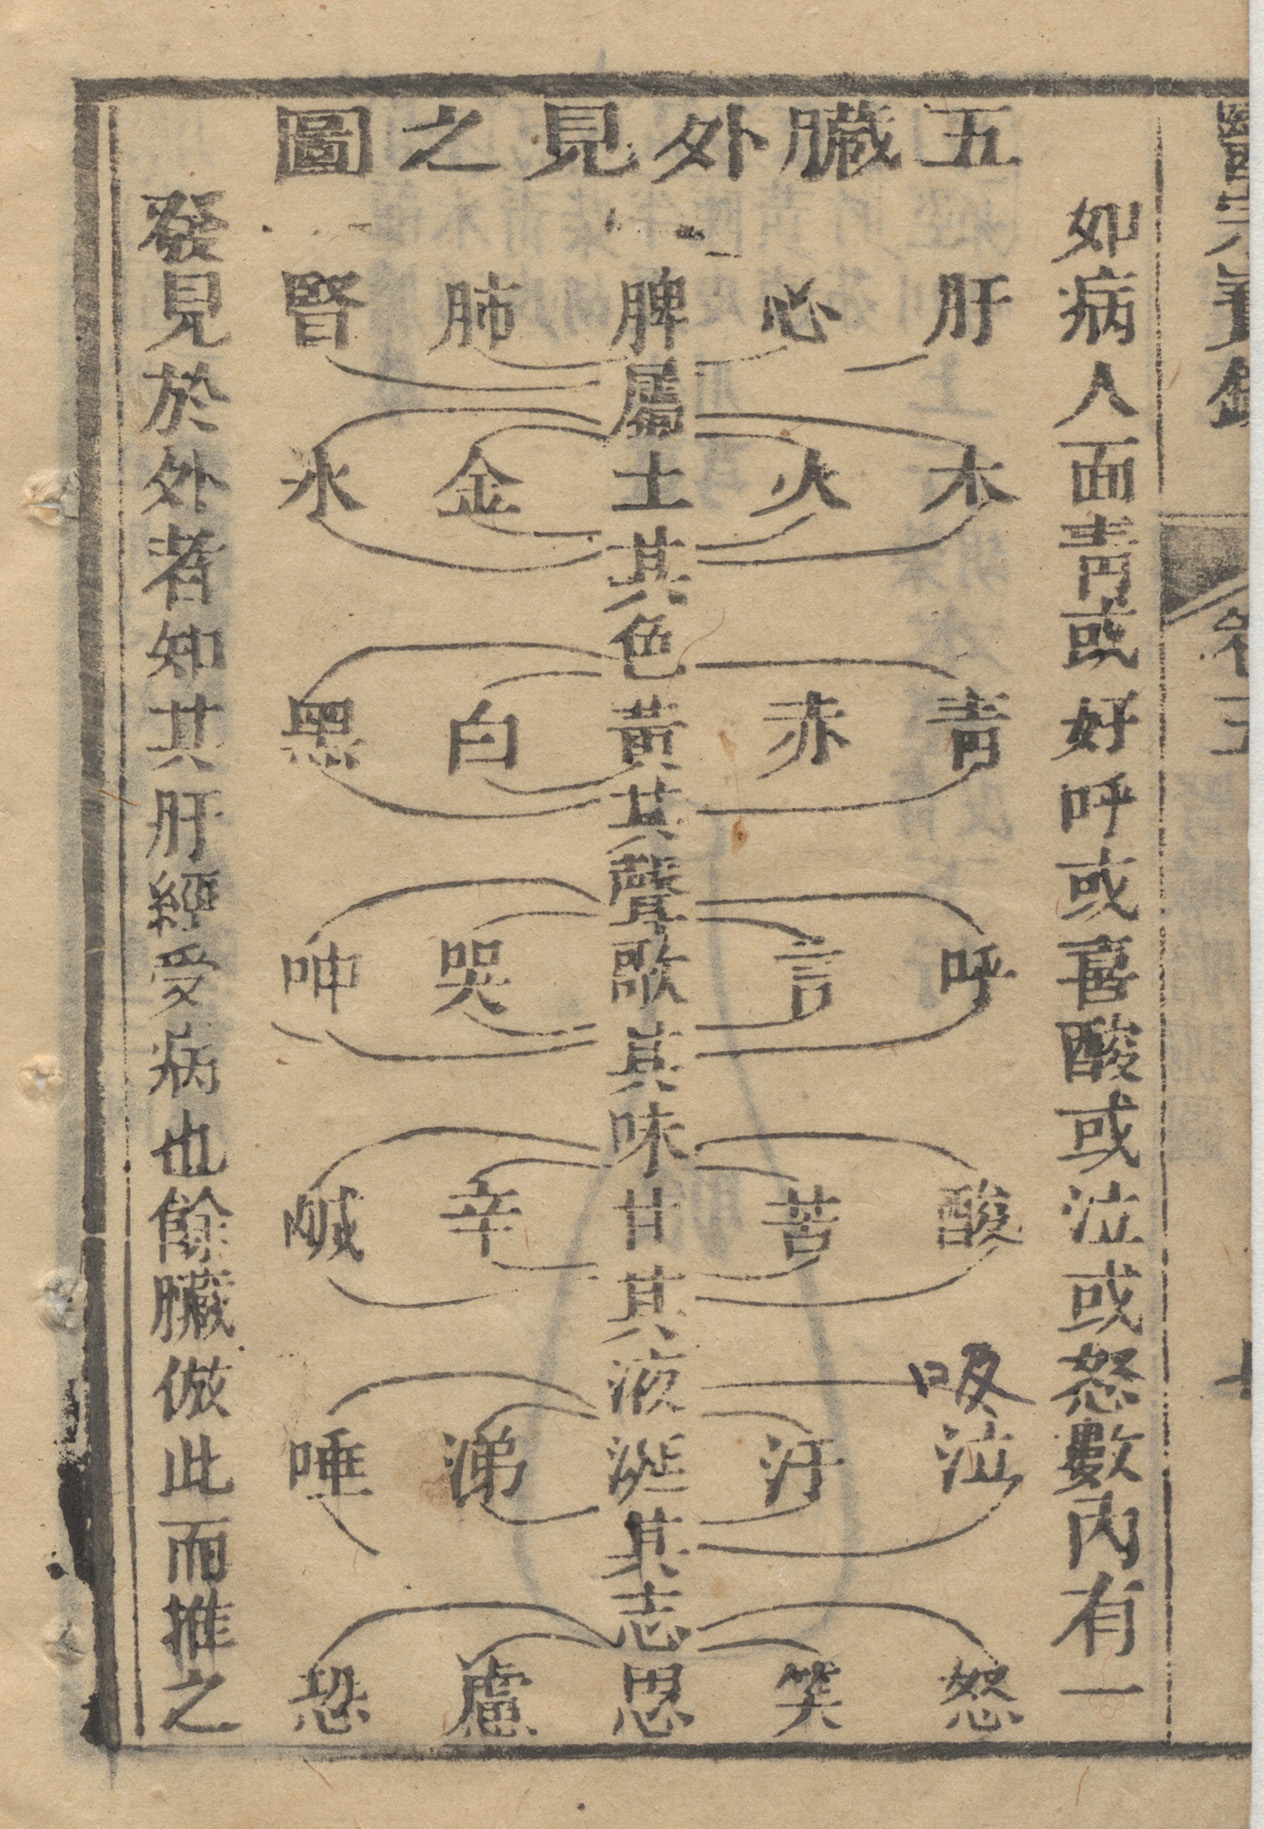 五臟外見之圖
如病人面靑或好呼或喜酸或泣或怒數內有一
肝 心 脾 肺 腎
屬
木 火 土 金 水
其色
靑 赤 黃 白 黑
其聲
呼 言 歌 哭 呻
其味
酸 苦 甘 辛 鹹
其液
吸
泣 汗 涎 涕 唾
其志
怒 笑 思 慮 恐
發見於外者知其肝經受病也餘臟倣此而推之